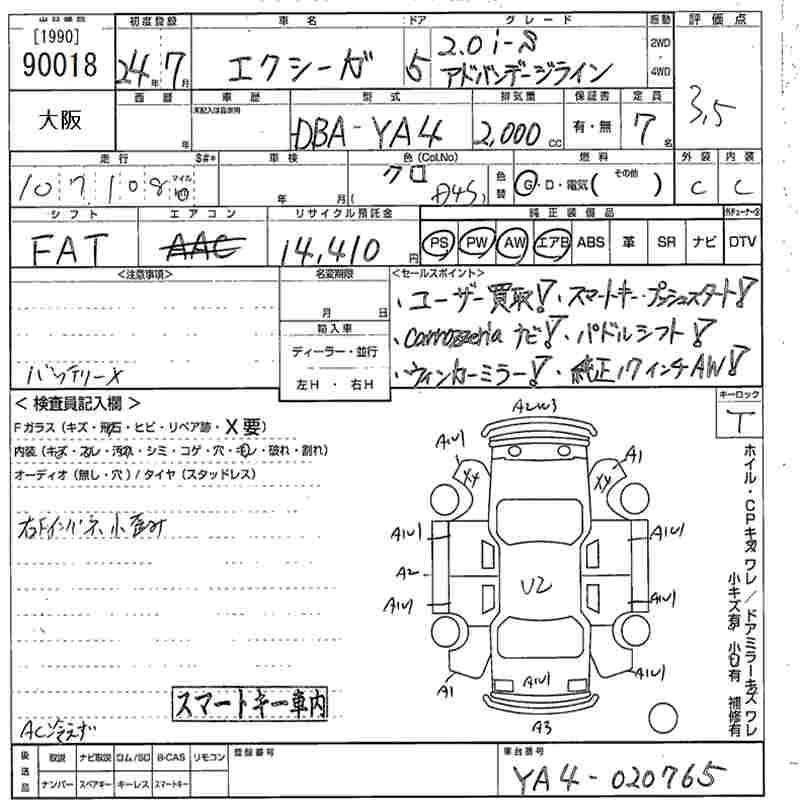 [1990]
90018
大阪
初度登録 車名 ドア グレード 駆動 評価点
24年7月 エクシーガ 5 2.0i-S
アドバンテージライン
2WD
・
4WD
3.5
西暦 車歴 型式 排気量 保証書 定員
年 DBA-YA4 2,000cc 有・無 7名
走行 $#* 車検 色(Col.No) 燃料 外装 内装
107,108 マイル km 年 月( クロ D4S) 色替 G・D・電気( その他 ) C C
シフト エアコン リサイクル預託金 純正装備品
FAT AAC 14,410円 PS PW AW エアB ABS 革 SR ナビ DTV
<注意事項> 名変期限 <セールスポイント>
月 日
輸入車
ディーラー・並行
左H ・ 右H
・ユーザー買取!・スマートキー・プッシュスタート!
・carrozzeria ナビ!・パドルシフト!
・ウィンカーミラー!・純正17インチAW!
バッテリーX
< 検査員記入欄 >
Fガラス (キズ・飛石・ヒビ・リペア跡・X要)
内装 (キズ・スレ・汚れ・シミ・コゲ・穴・キレ・破れ・割れ)
オーディオ (無し・穴) / タイヤ (スタッドレス)
右Fインパネ小歪み
スマートキー車内
AC冷えず
キーロック
T
A2W3
A1U1
A1
XX
XX
A1U1
A1U1
A2
A1U1
A1U1
U2
A1
A1U1
A1U1
A3
ホイル・CPキズ ワレ / ドアミラーキズ ワレ
小キズ有 小U有 補修有
後送品
取説 ナビ取説 ロム/SD B-CAS リモコン
ナンバー スペアキー キーレス スマートキー
登録番号
車台番号
YA4-020765